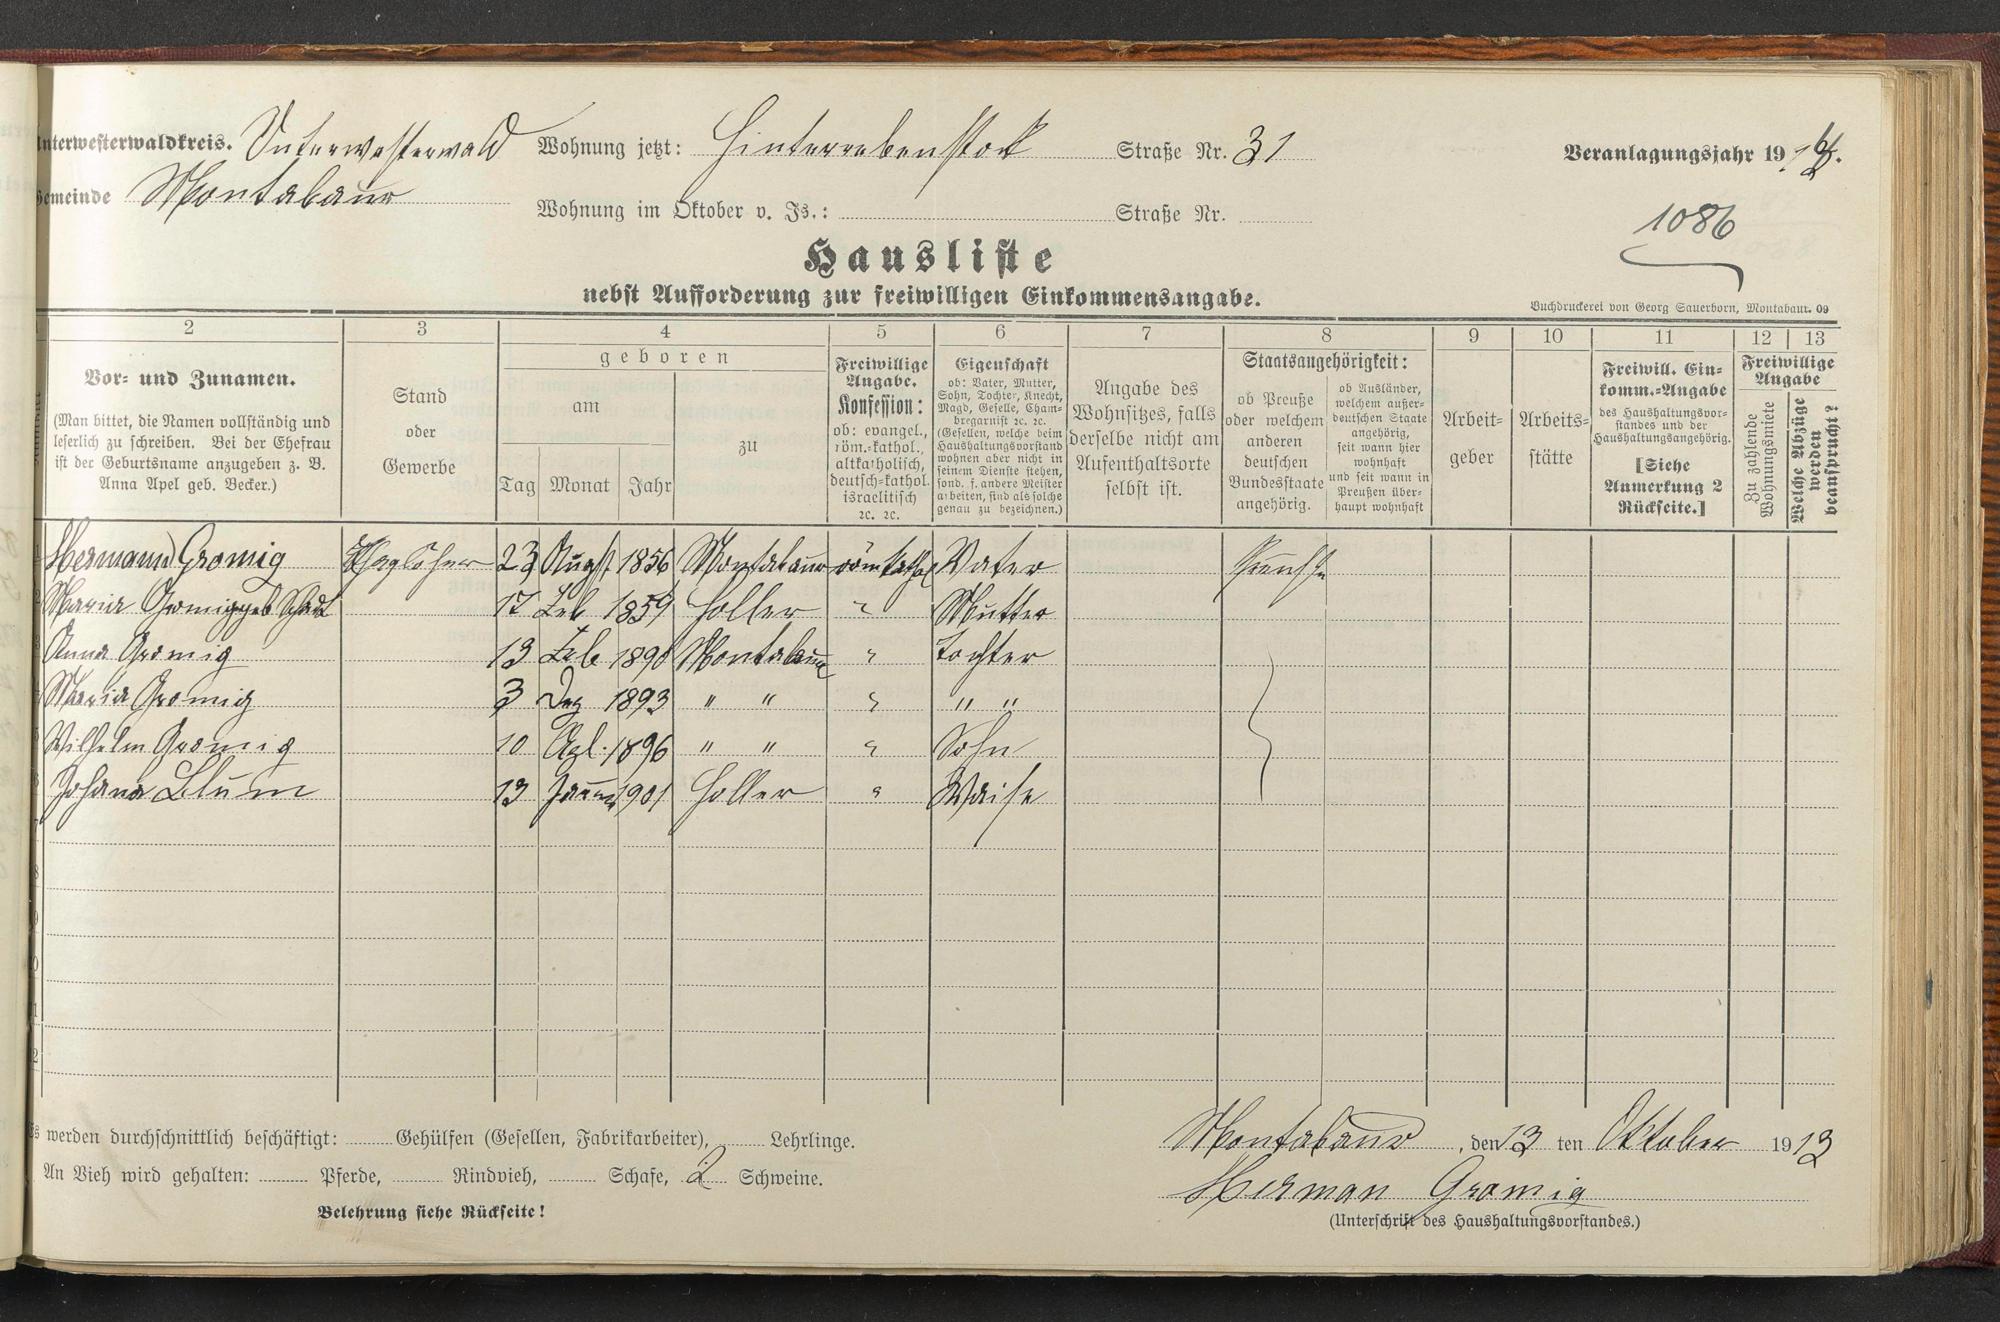 Unterwesterwaldkreis. Unterwesterwald Wohnung jetzt: Hinterrebenstock Straße Nr. 31 Veranlagungsjahr 19
Gemeinde Montabaur Wohnung im Oktober v. Js.: Straße Nr.
1086
Hausliste
nebst Aufforderung zur freiwilligen Einkommensangabe.
Buchdruckerei von Georg Sauerborn, Montabaur. 09
2 3 4 5 6 7 8 9 10 11 12 13
Vor- und Zunamen.
(Man bittet, die Namen vollständig und
leserlich zu schreiben. Bei der Ehefrau
ist der Geburtsname anzugeben z. B.
Anna Apel geb. Becker.)
Stand
oder
Gewerbe
geboren
am
zu
Tag Monat Jahr
Freiwillige
Angabe.
Konfession:
ob: evangel.,
röm.-kathol.,
altkatholisch,
deutsch-kathol.
israelitisch
ꝛc. ꝛc.
Eigenschaft
ob: Vater, Mutter,
Sohn, Tochter, Knecht,
Magd, Geselle, Cham-
bregarnist ꝛc. ꝛc.
(Gesellen, welche beim
Haushaltungsvorstand
wohnen aber nicht in
seinem Dienste stehen,
sond. f. andere Meister
arbeiten, sind als solche
genau zu bezeichnen.)
Angabe des
Wohnsitzes, falls
derselbe nicht am
Aufenthaltsorte
selbst ist.
Staatsangehörigkeit:
ob Preuße
oder welchem
anderen
deutschen
Bundesstaate
angehörig.
ob Ausländer,
welchem außer-
deutschen Staate
angehörig,
seit wann hier
wohnhaft
und seit wann in
Preußen über-
haupt wohnhaft
Arbeit-
geber
Arbeits-
stätte
Freiwill. Ein-
komm.-Angabe
des Haushaltungsvor-
standes und der
Haushaltungsangehörig.
[Siehe
Anmerkung 2
Rückseite.]
Freiwillige
Angabe
Zu zahlende
Wohnungsmiete
Welche Abzüge
werden
beansprucht?
Hermann Gromig Taglöhner 23 August 1856 Montabaur römkathol Vater Preuße
Maria Gromig geb 17 Feb 1859 Holler " Mutter
Anna Gromig 13 Feb 1890 Montabaur " Tochter
Maria Gromig 3 Dez 1893 " " " " "
Wilhelm Gromig 10 1896 " " " Sohn
Johana Blum 13 Januar 1901 Holler " Waise
Es werden durchschnittlich beschäftigt: Gehülfen (Gesellen, Fabrikarbeiter), Lehrlinge.
An Vieh wird gehalten: Pferde, Rindvieh, Schafe, 2 Schweine.
Belehrung siehe Rückseite!
Montabaur, den 13 ten Oktober 1913
Herman Gromig
(Unterschrift des Haushaltungsvorstandes.)